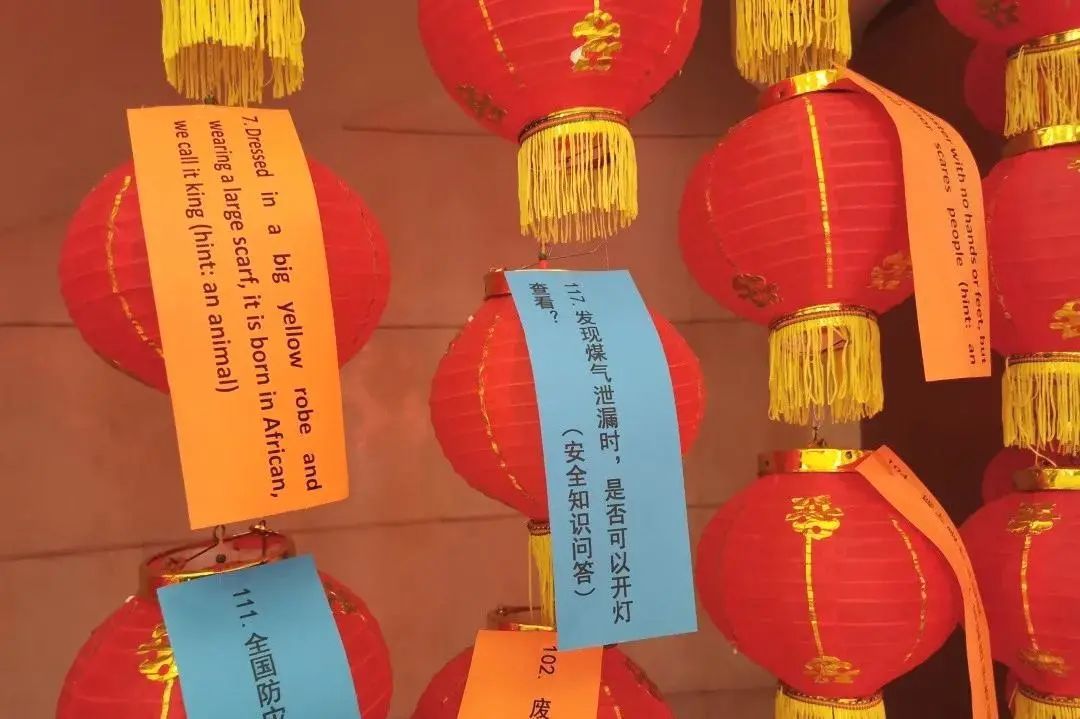 7. Dressed in a big yellow robe and
wearing a large scarf, it is born in African,
we call it king (hint: an animal)
117. 发现煤气泄漏时，是否可以开灯
查看？
（安全知识问答）
with no hands or feet, but
scares people (hint: an
111. 全国防灾
102. 废
104.